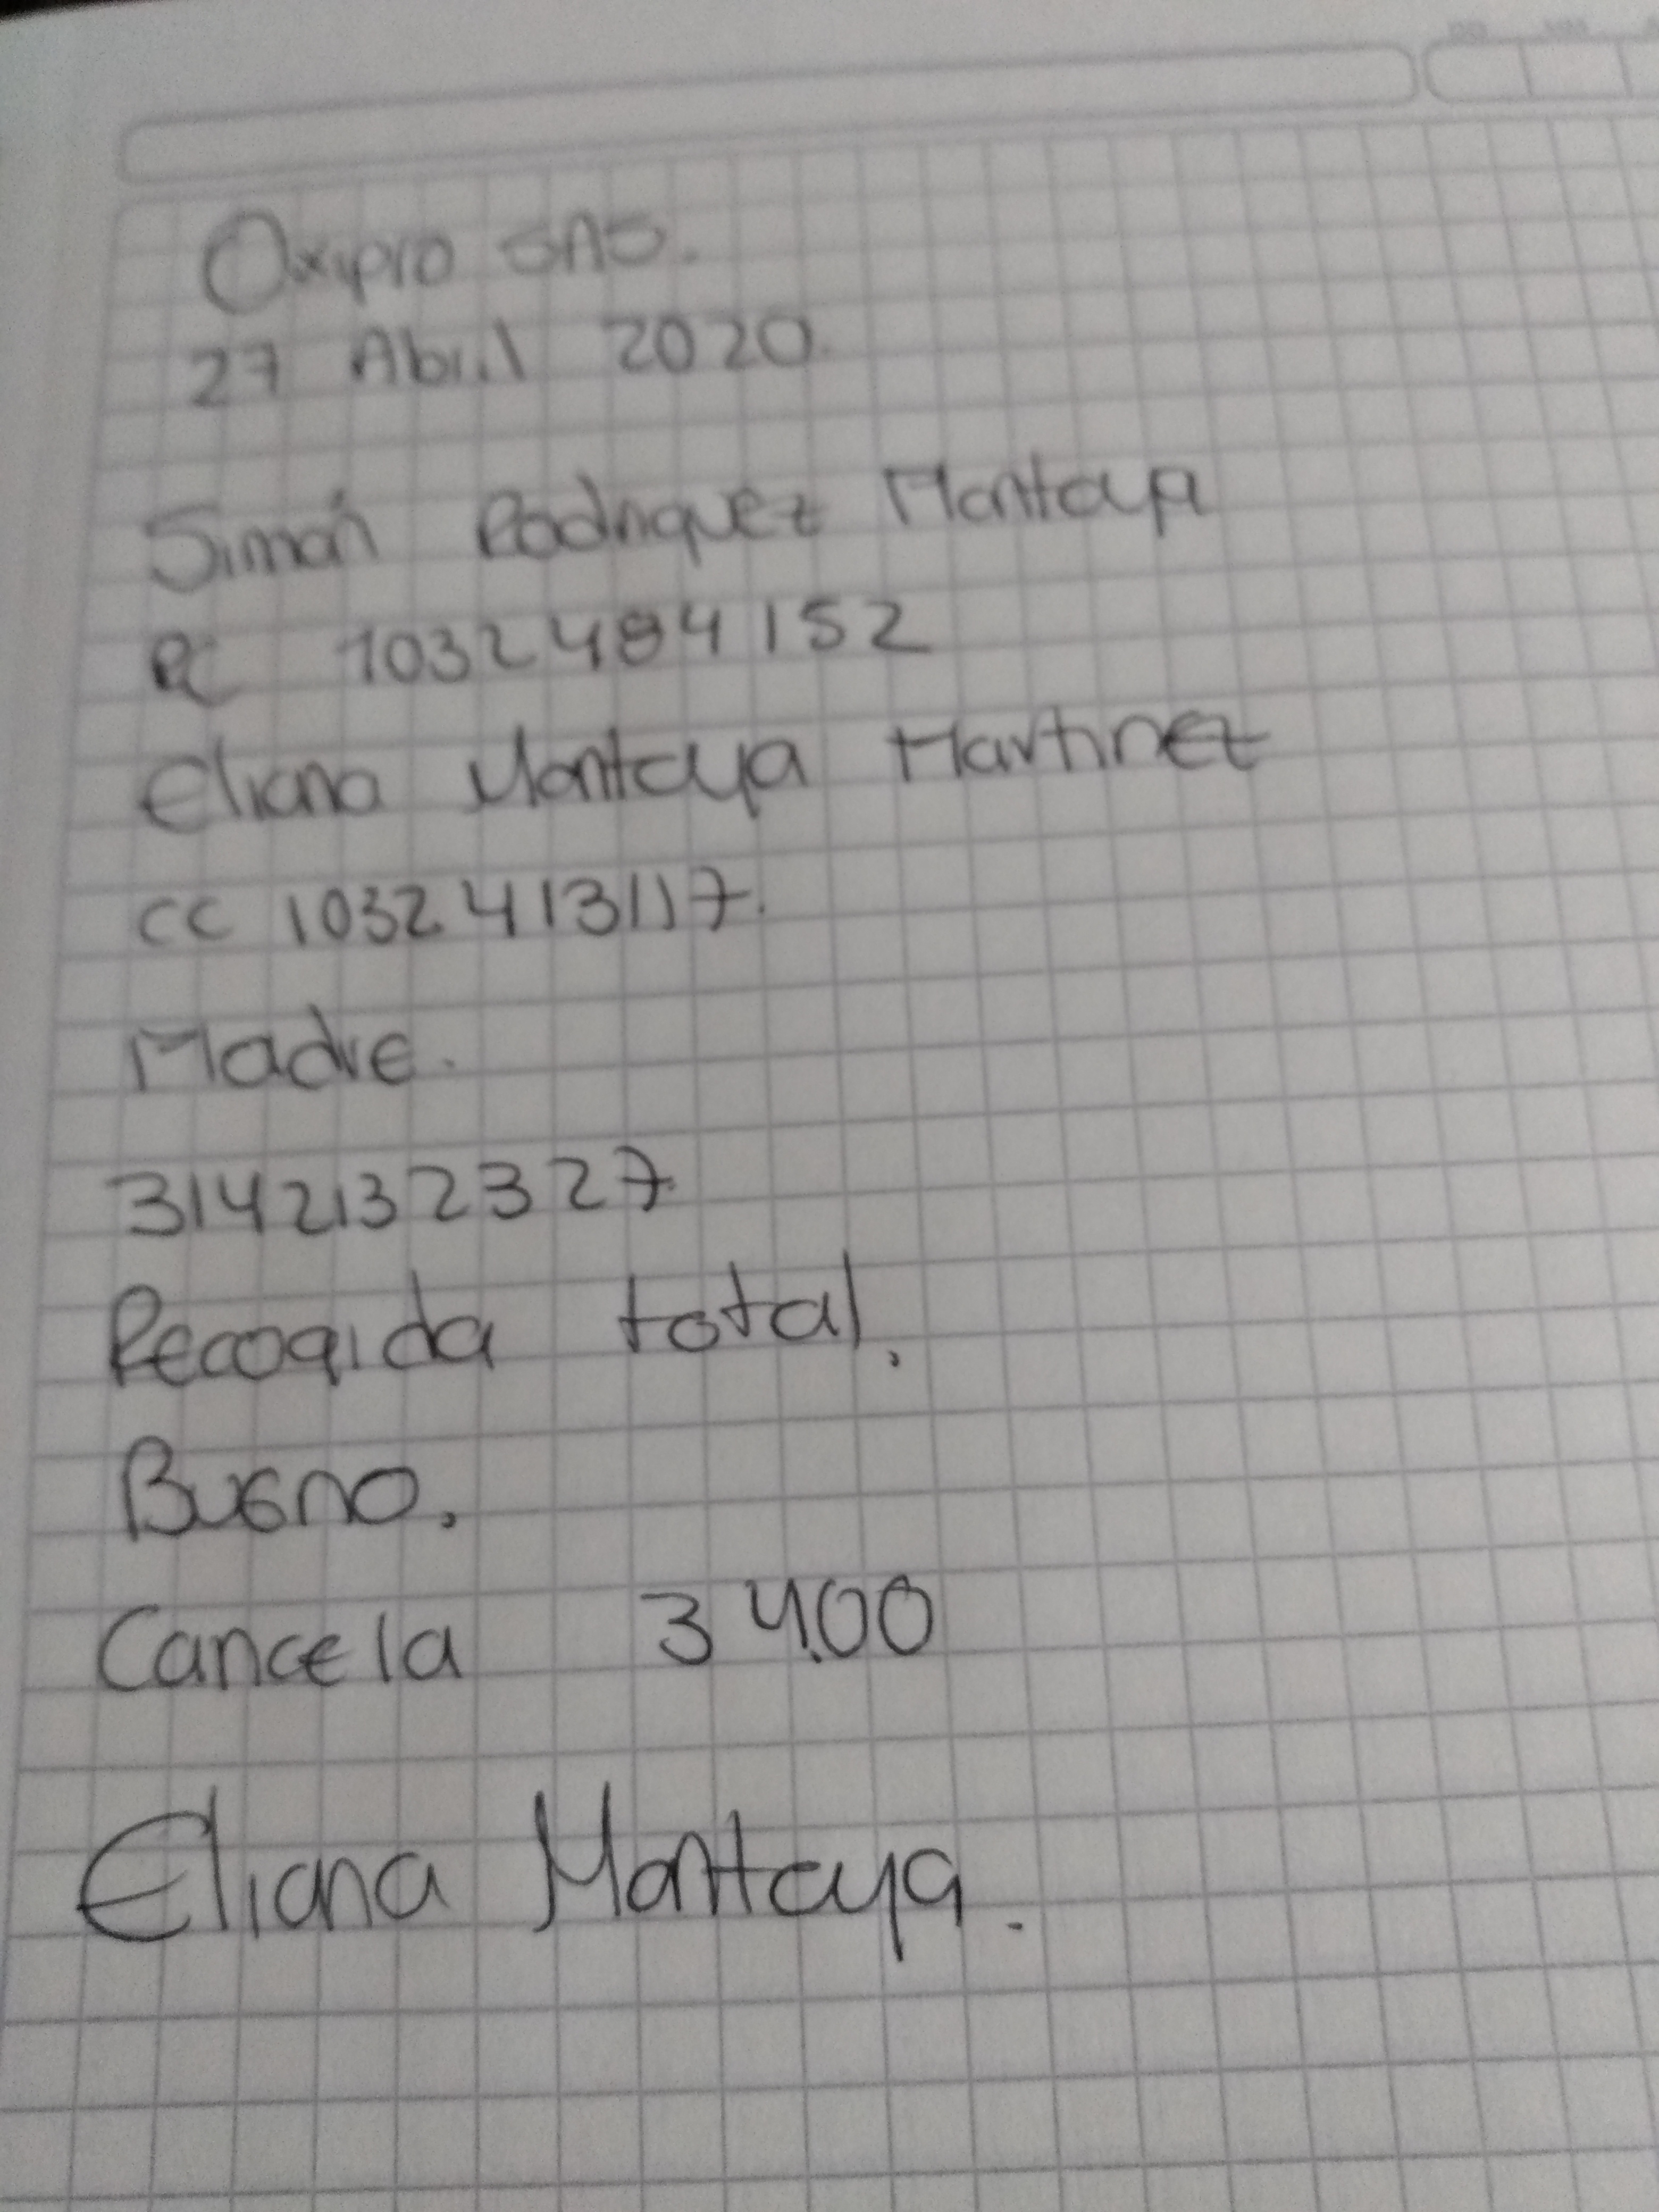 Oxipro SAS.
27 Abril 2020.
Simón Rodriguez Montoya
RC 1032484152
Eliana Montoya Martinez
CC 1032413117.
Madre.
3142132327.
Recogida total.
Bueno.
Cancela 3400
Eliana Montoya.